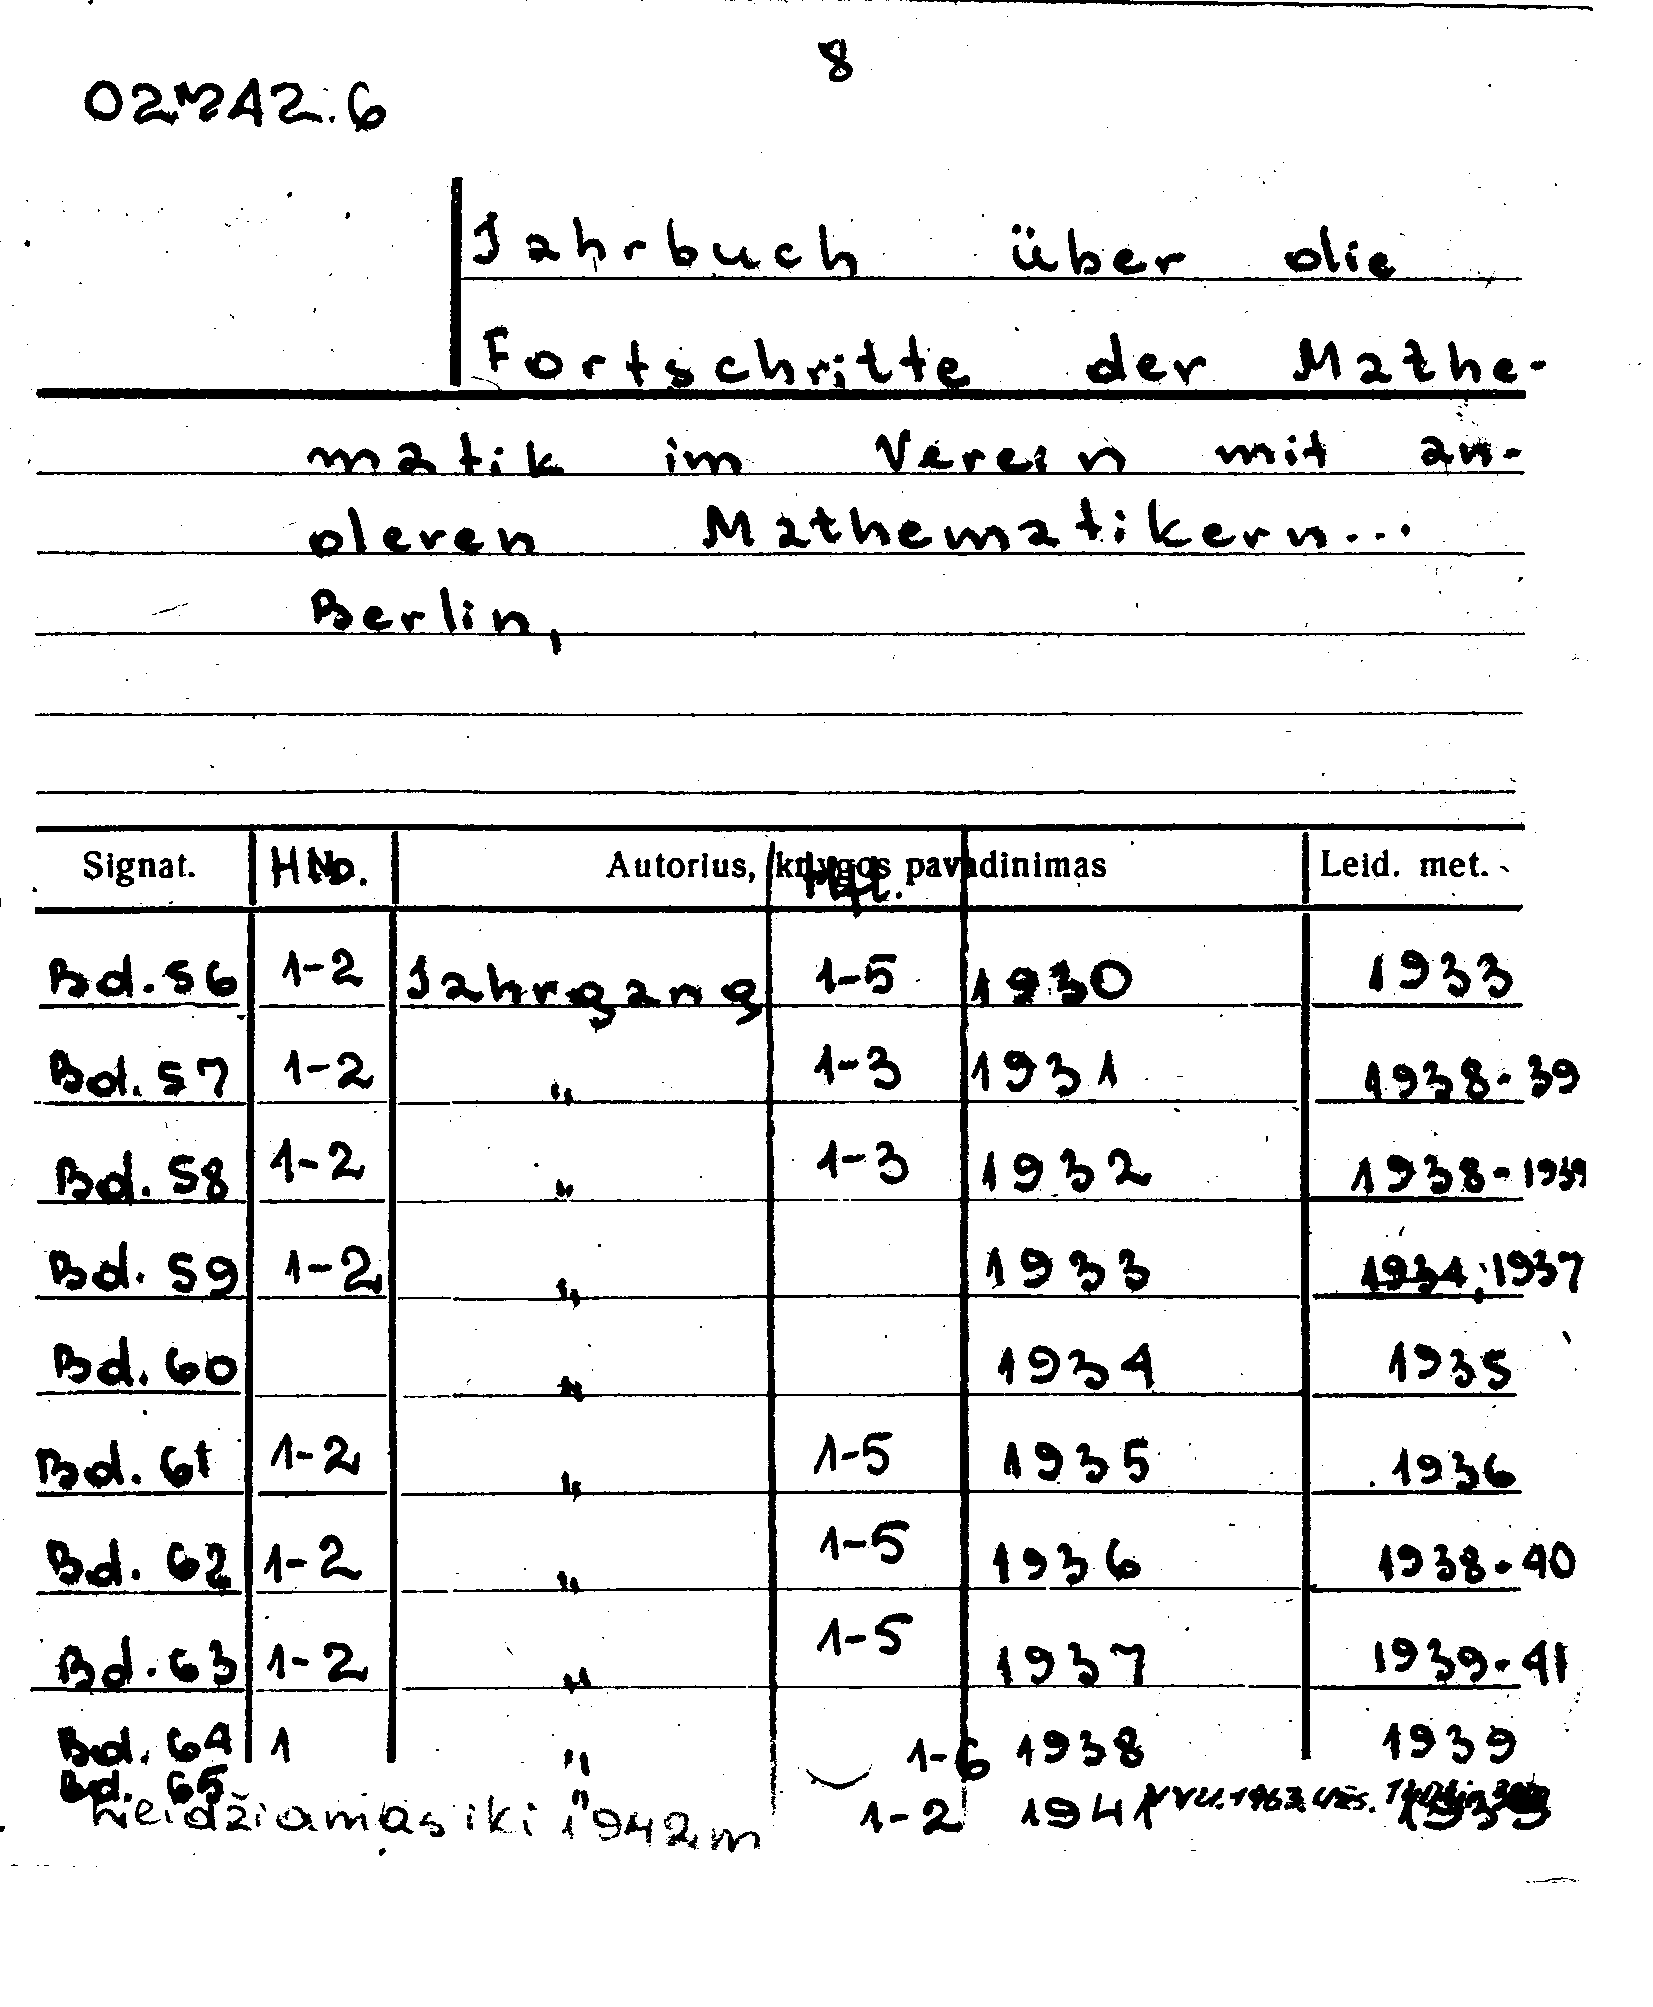 8
Jahrbuch über die
Fortschritte der Mathe-
matik im Verein mit an-
deren Mathematikern...
Berlin,
Signat. HNo. Autorius, knygos pavadinimas Leid. met.
Hft.
Bd. 56 1-2 Jahrgang 1-5 1930 1933
Bd. 57 1-2 " 1-3 1931 1938-39
Bd. 58 1-2 " 1-3 1932 1938-1939
Bd. 59 1-2 " 1933 1934; 1937
Bd. 60 " 1934 1935
Bd. 61 1-2 " 1-5 1935 1936
Bd. 62 1-2 " 1-5 1936 1938-40
Bd. 63 1-2 " 1-5 1937 1939-41
Bd. 64 1 " 1-6 1938 1939
Bd. 65 " 1-2 1941 1939
Leidžiamas iki 1942 m